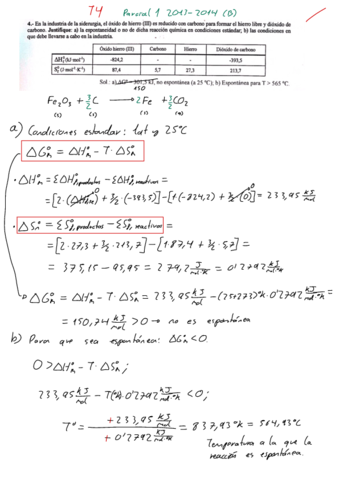 T4 Parcial 1 2013-2014 (B)
4.- En la industria de la siderurgia, el óxido de hierro (III) es reducido con carbono para formar el hierro libre y dióxido de
carbono. Justifique: a) la espontaneidad o no de dicha reacción química en condiciones estándar; b) las condiciones en
que debe llevarse a cabo en la industria.
Óxido hierro (III) Carbono Hierro Dióxido de carbono
ΔHf°(kJ·mol⁻¹) -824,2 - - -393,5
S°(J·mol⁻¹·K⁻¹) 87,4 5,7 27,3 213,7
Sol: a) ΔG°= 301,5 kJ, no espontánea (a 25 °C); b) Espontánea para T > 565 °C.
150
Fe₂O₃ + 3/2 C → 2Fe + 3/2 CO₂
(s) (s) (s) (g)
a) Condiciones estandar: 1at y 25°C
ΔG°R = ΔH°R - T·ΔS°R
· ΔH°R = ΣΔH°f productos - ΣΔH°f reactivos =
= [2·(ΔH°f Fe) + 3/2·(-393,5)] - [1·(-824,2) + 3/2·(0)] = 233,95 kJ/mol
· ΔS°R = ΣS°f productos - ΣS°f reactivos =
= [2·27,3 + 3/2·213,7] - [1·87,4 + 3/2·5,7] =
= 375,15 - 95,95 = 279,2 J/mol·°K = 0'2792 kJ/mol·°K
ΔG°R = ΔH°R - T·ΔS°R = 233,95 kJ/mol - (25+273)°K·0'2792 kJ/mol·°K =
= 150,74 kJ/mol > 0 → no es espontánea
b) Para que sea espontánea: ΔG°R < 0.
0 > ΔH°R - T·ΔS°R
233,95 kJ/mol - T(°K)·0'2792 kJ/mol·°K < 0;
T° = +233,95 kJ/mol / +0'2792 kJ/mol·°K = 837,93°K = 564,93°C
Temperatura a la que la
reacción es espontánea.